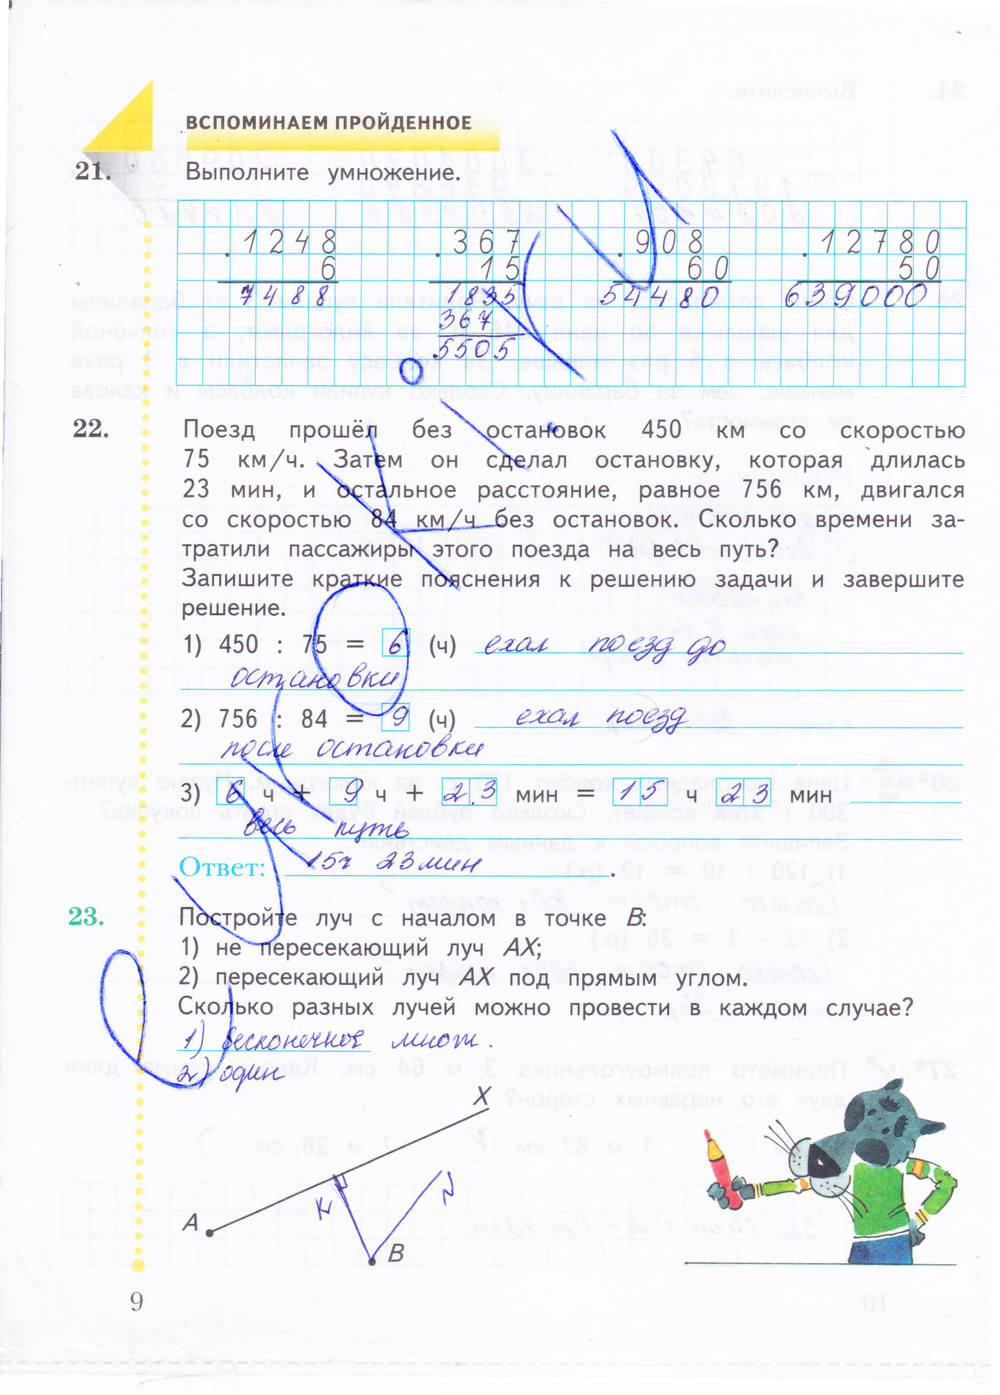 ВСПОМИНАЕМ ПРОЙДЕННОЕ
21. Выполните умножение.
1248 367 908 12780
6 15 60 50
7488 1835 54480 639000
367
5505
22. Поезд прошёл без остановок 450 км со скоростью
75 км/ч. Затем он сделал остановку, которая длилась
23 мин, и остальное расстояние, равное 756 км, двигался
со скоростью 84 км/ч без остановок. Сколько времени за-
тратили пассажиры этого поезда на весь путь?
Запишите краткие пояснения к решению задачи и завершите
решение.
1) 450 : 75 = 6 (ч) ехал поезд до
остановки
2) 756 : 84 = 9 (ч) ехал поезд
после остановки
3) 6 ч + 9 ч + 23 мин = 15 ч 23 мин
весь путь
Ответ: 15ч 23 мин.
23. Постройте луч с началом в точке B:
1) не пересекающий луч AX;
2) пересекающий луч AX под прямым углом.
Сколько разных лучей можно провести в каждом случае?
1) бесконечное множ.
2) один
X
K
N
A
B
9